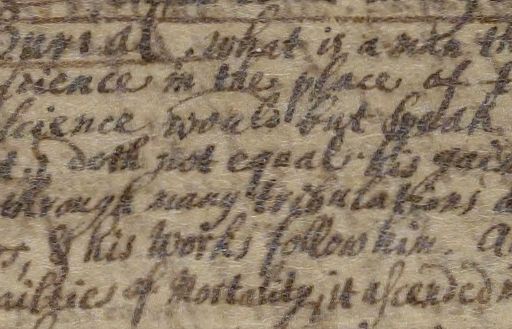 burial. what is a man th
rience in the place of f
science would but speak
t, doth not equal his gain
through many tribulations a
s, & his works follow him. A
ailties of Mortality, it ascended